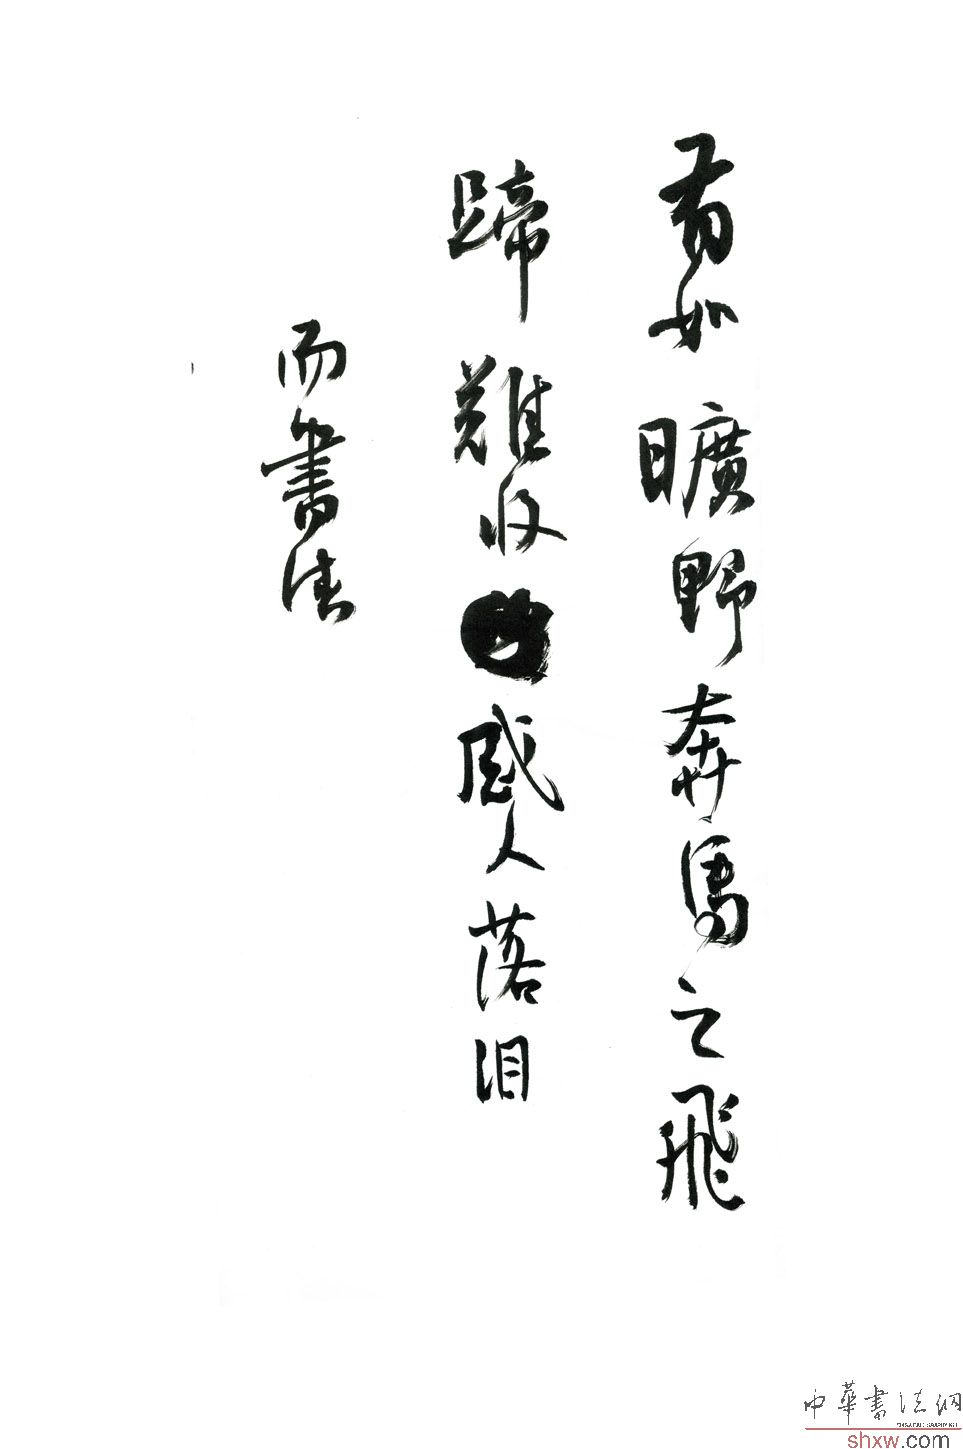 有如曠野奔馬之飛
蹄難收感人落泪
而書法
中華書法網
shxw.com